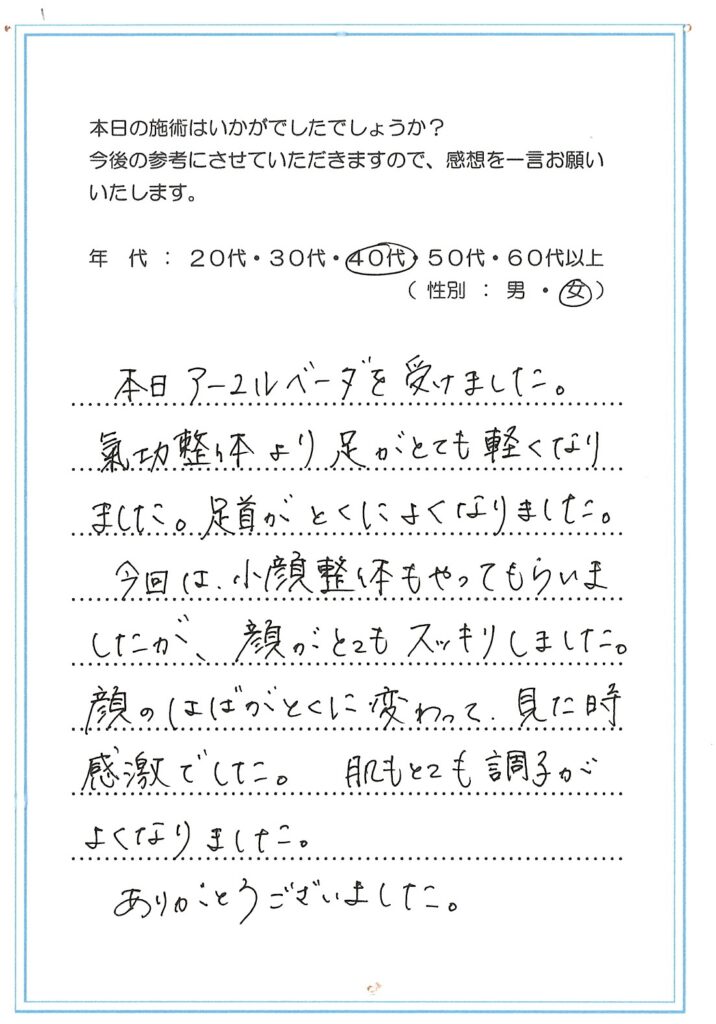 本日の施術はいかがでしたでしょうか？
今後の参考にさせていただきますので、感想を一言お願い
いたします。
年　代　：　２０代・３０代・４０代・５０代・６０代以上
（　性別　：　男　・　女　）
本日アーユルベーダを受けました。
氣功整体より足がとても軽くなり
ました。足首がとくによくなりました。
今回は、小顔整体もやってもらいま
したが、顔がとてもスッキリしました。
顔のはばがとくに変わって、見た時
感激でした。　肌もとても調子が
よくなりました。
ありがとうございました。